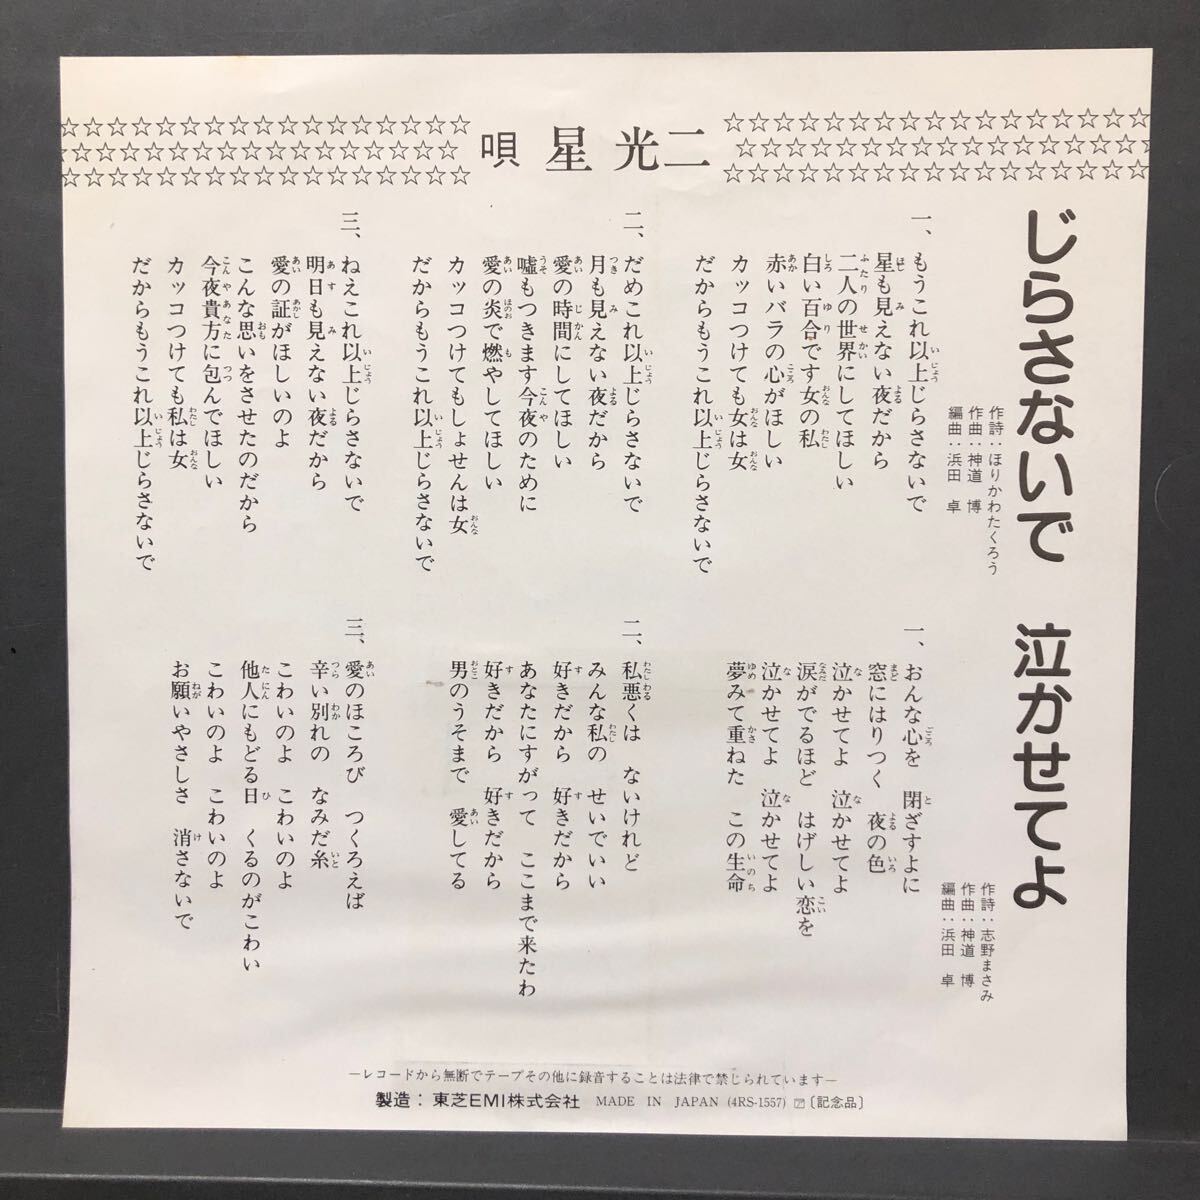 ☆☆☆☆☆☆☆☆☆☆☆☆☆☆☆☆☆☆
唄 星 光二
じらさないで
作詩：ほりかわたくろう
作曲：神道 博
編曲：浜田 卓
一、
もうこれ以上じらさないで
星も見えない夜だから
二人の世界にしてほしい
白い百合です女の私
赤いバラの心がほしい
カッコつけても女は女
だからもうこれ以上じらさないで
二、
だめこれ以上じらさないで
月も見えない夜だから
愛の時間にしてほしい
嘘もつきます今夜のために
愛の炎で燃やしてほしい
カッコつけてもしょせんは女
だからもうこれ以上じらさないで
三、
ねえこれ以上じらさないで
明日も見えない夜だから
愛の証がほしいのよ
こんな思いをさせたのだから
今夜貴方に包んでほしい
カッコつけても私は女
だからもうこれ以上じらさないで
泣かせてよ
作詩：志野まさみ
作曲：神道 博
編曲：浜田 卓
一、
おんな心を 閉ざすよに
窓にはりつく 夜の色
泣かせてよ 泣かせてよ
涙がでるほど はげしい恋を
泣かせてよ 泣かせてよ
夢みて重ねた この生命
二、
私悪くは ないけれど
みんな私の せいでいい
好きだから 好きだから
あなたにすがって ここまで来たわ
好きだから 好きだから
男のうそまで 愛してる
三、
愛のほころび つくろえば
辛い別れの なみだ糸
こわいのよ こわいのよ
他人にもどる日 くるのがこわい
こわいのよ こわいのよ
お願いやさしさ 消さないで
―レコードから無断でテープその他に録音することは法律で禁じられています―
製造：東芝EMI株式会社 MADE IN JAPAN (4RS-1557) ㋐〔記念品〕